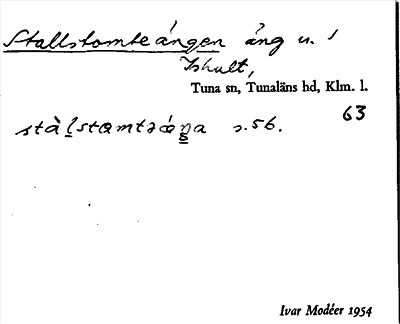 Stallstomteängen äng u. 1
Ishult,
Tuna sn, Tunaläns hd, Klm. l.
63
stàlstomtəáŋa s.56.
Ivar Modéer 1954